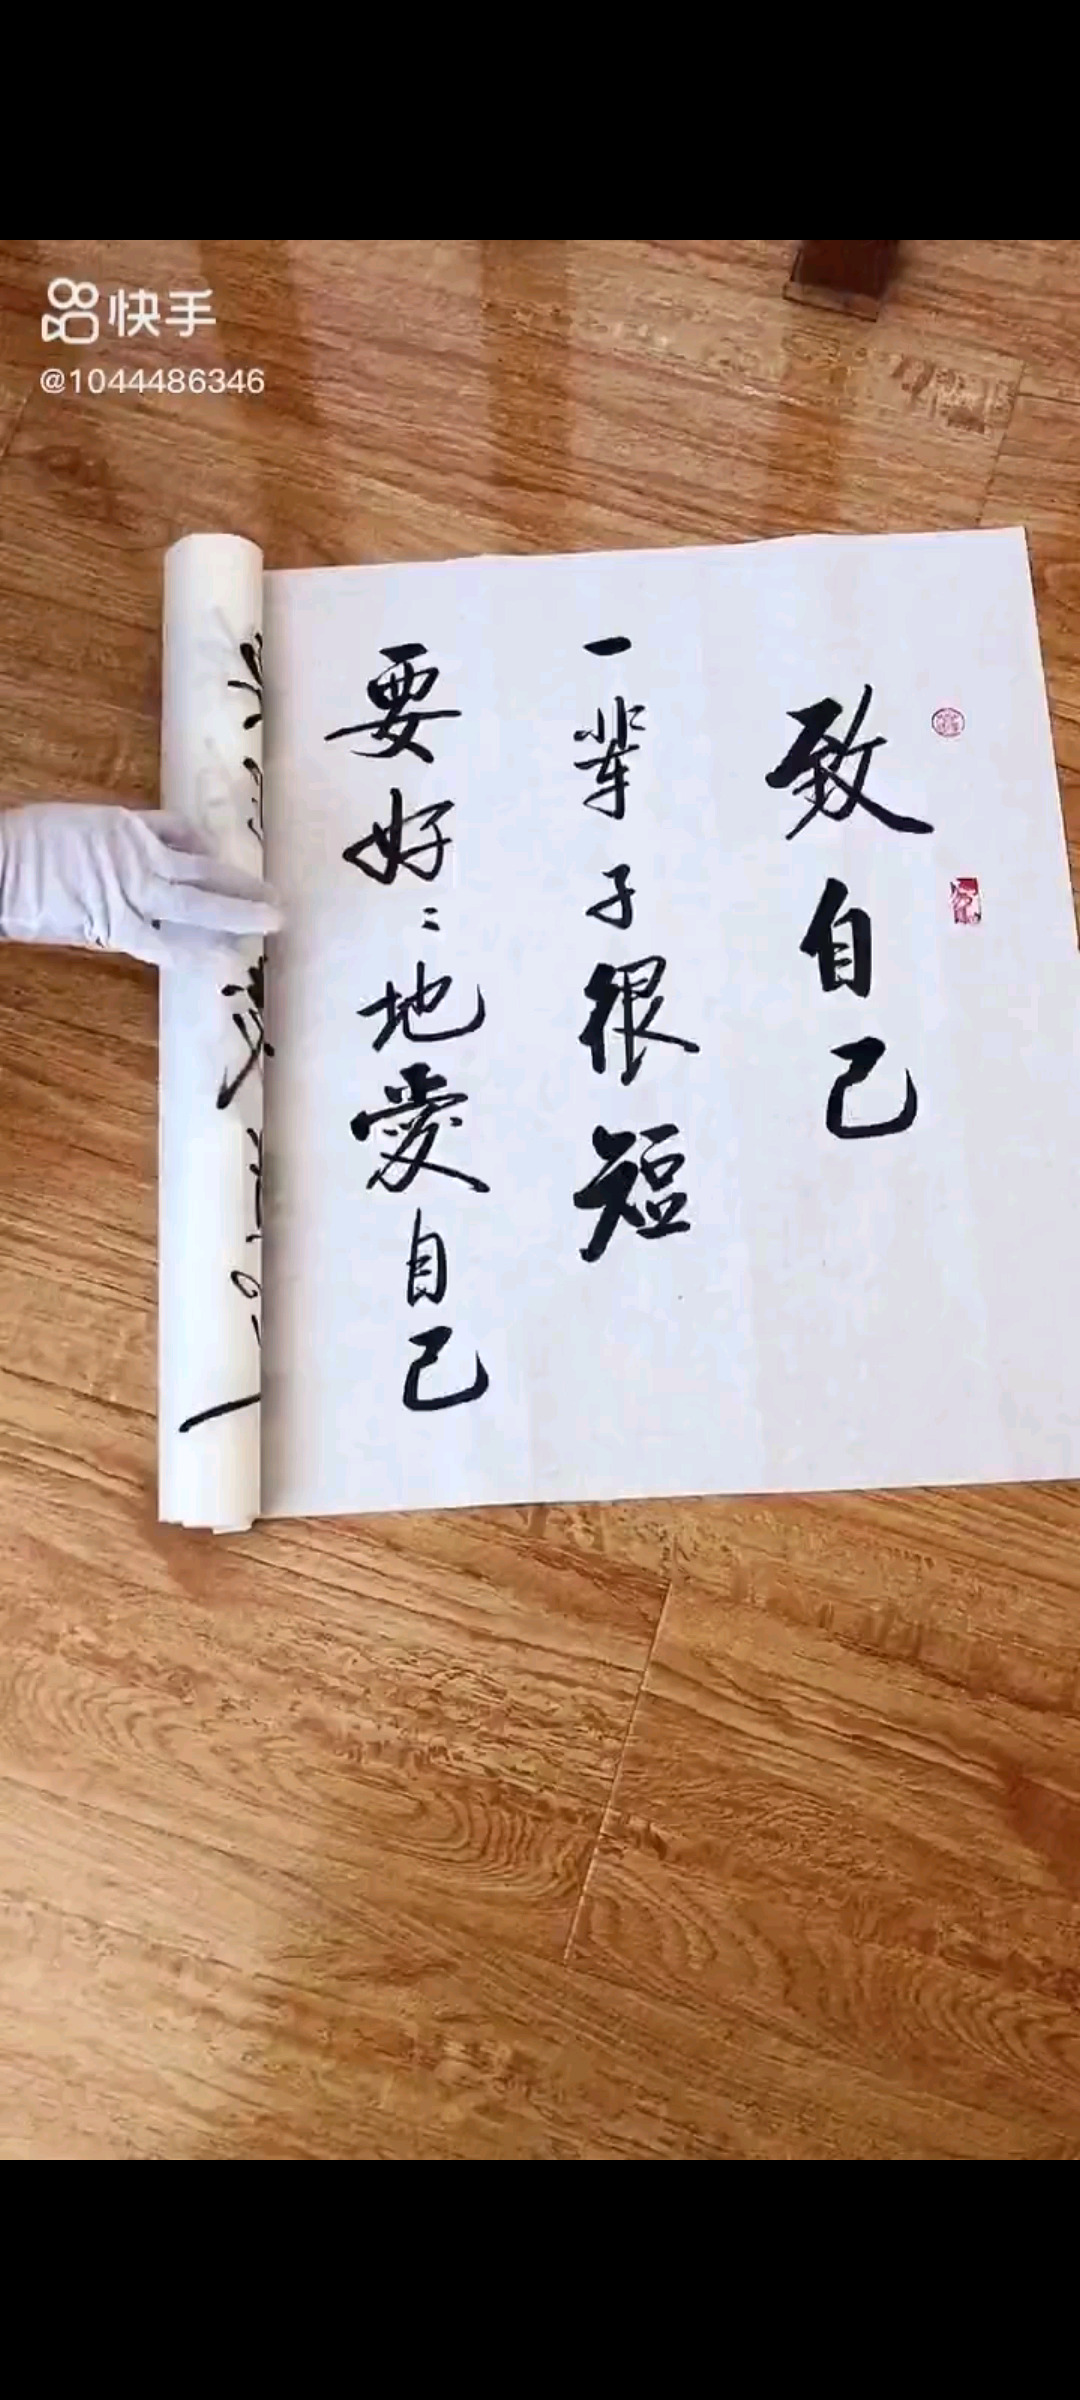 快手
@1044486346
致自己
一辈子很短
要好:地愛自己